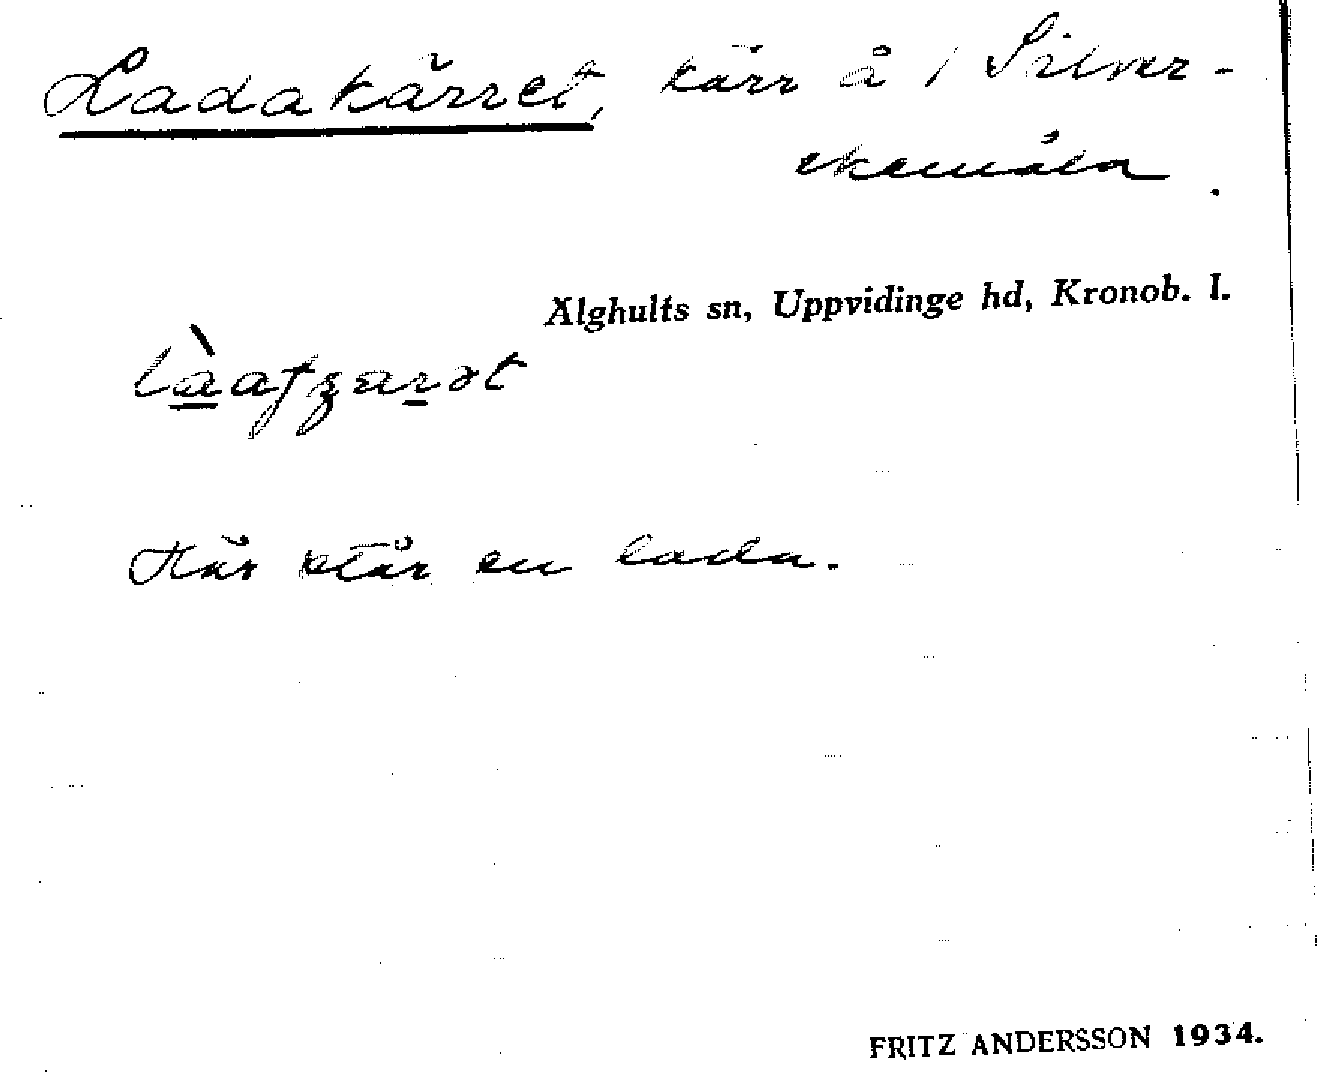 Ladakärret, kärr å 1 Silver-
ekemåla.
Älghults sn, Uppvidinge hd, Kronob. l.
Här står en lada.
FRITZ ANDERSSON 1934.